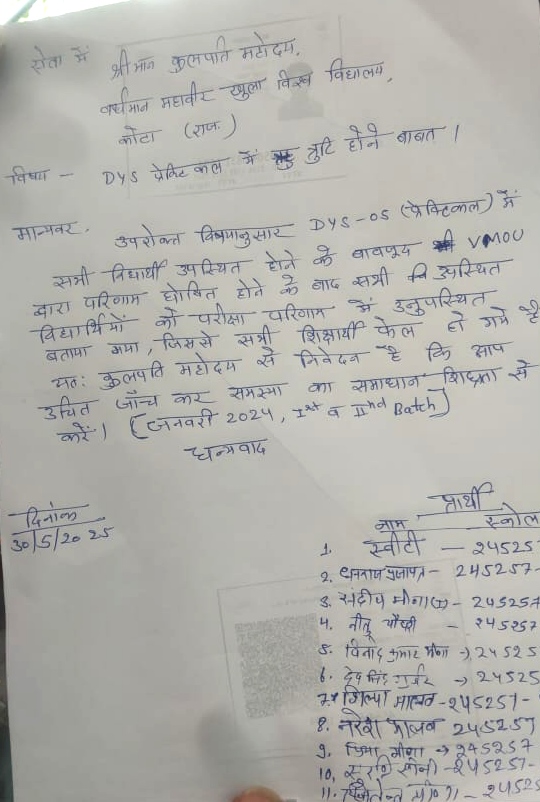 सेवा में
श्रीमान कुलपति महोदय,
वर्धमान महावीर खुला विश्व विद्यालय,
कोटा (राज.)
विषय - DYS प्रेक्टिकल में त्रुटि होने बाबत ।
मान्यवर,
उपरोक्त विषयानुसार DYS-05 (प्रेक्टिकल) में
सभी विद्यार्थी उपस्थित होने के बावजूद VMOU
द्वारा परिणाम घोषित होने के बाद सभी उपस्थित
विद्यार्थियों को परीक्षा परिणाम में अनुपस्थित
बताया गया, जिससे सभी शिक्षार्थी फेल हो गये है
अतः कुलपति महोदय से निवेदन है कि आप
उचित जाँच कर समस्या का समाधान शिघ्रता से
करें। [जनवरी 2024, Ist व IInd Batch]
धन्यवाद
दिनांक
30/5/2025
प्रार्थी
नाम स्कोल
1. स्वीटी - 245257
2. धनराज प्रजापत - 245257-
3. संदीप मीणा - 245257
4. नीतू चौधरी - 245257
5. विनोद कुमार मीणा → 24525
6. देव सिंह गुर्जर → 24525
7. शिल्पा मालव - 245257-
8. नरेश मालव 245257
9. मीणा → 245257
10. सुरभि सोनी - 245257-
11. मीणा - 24525